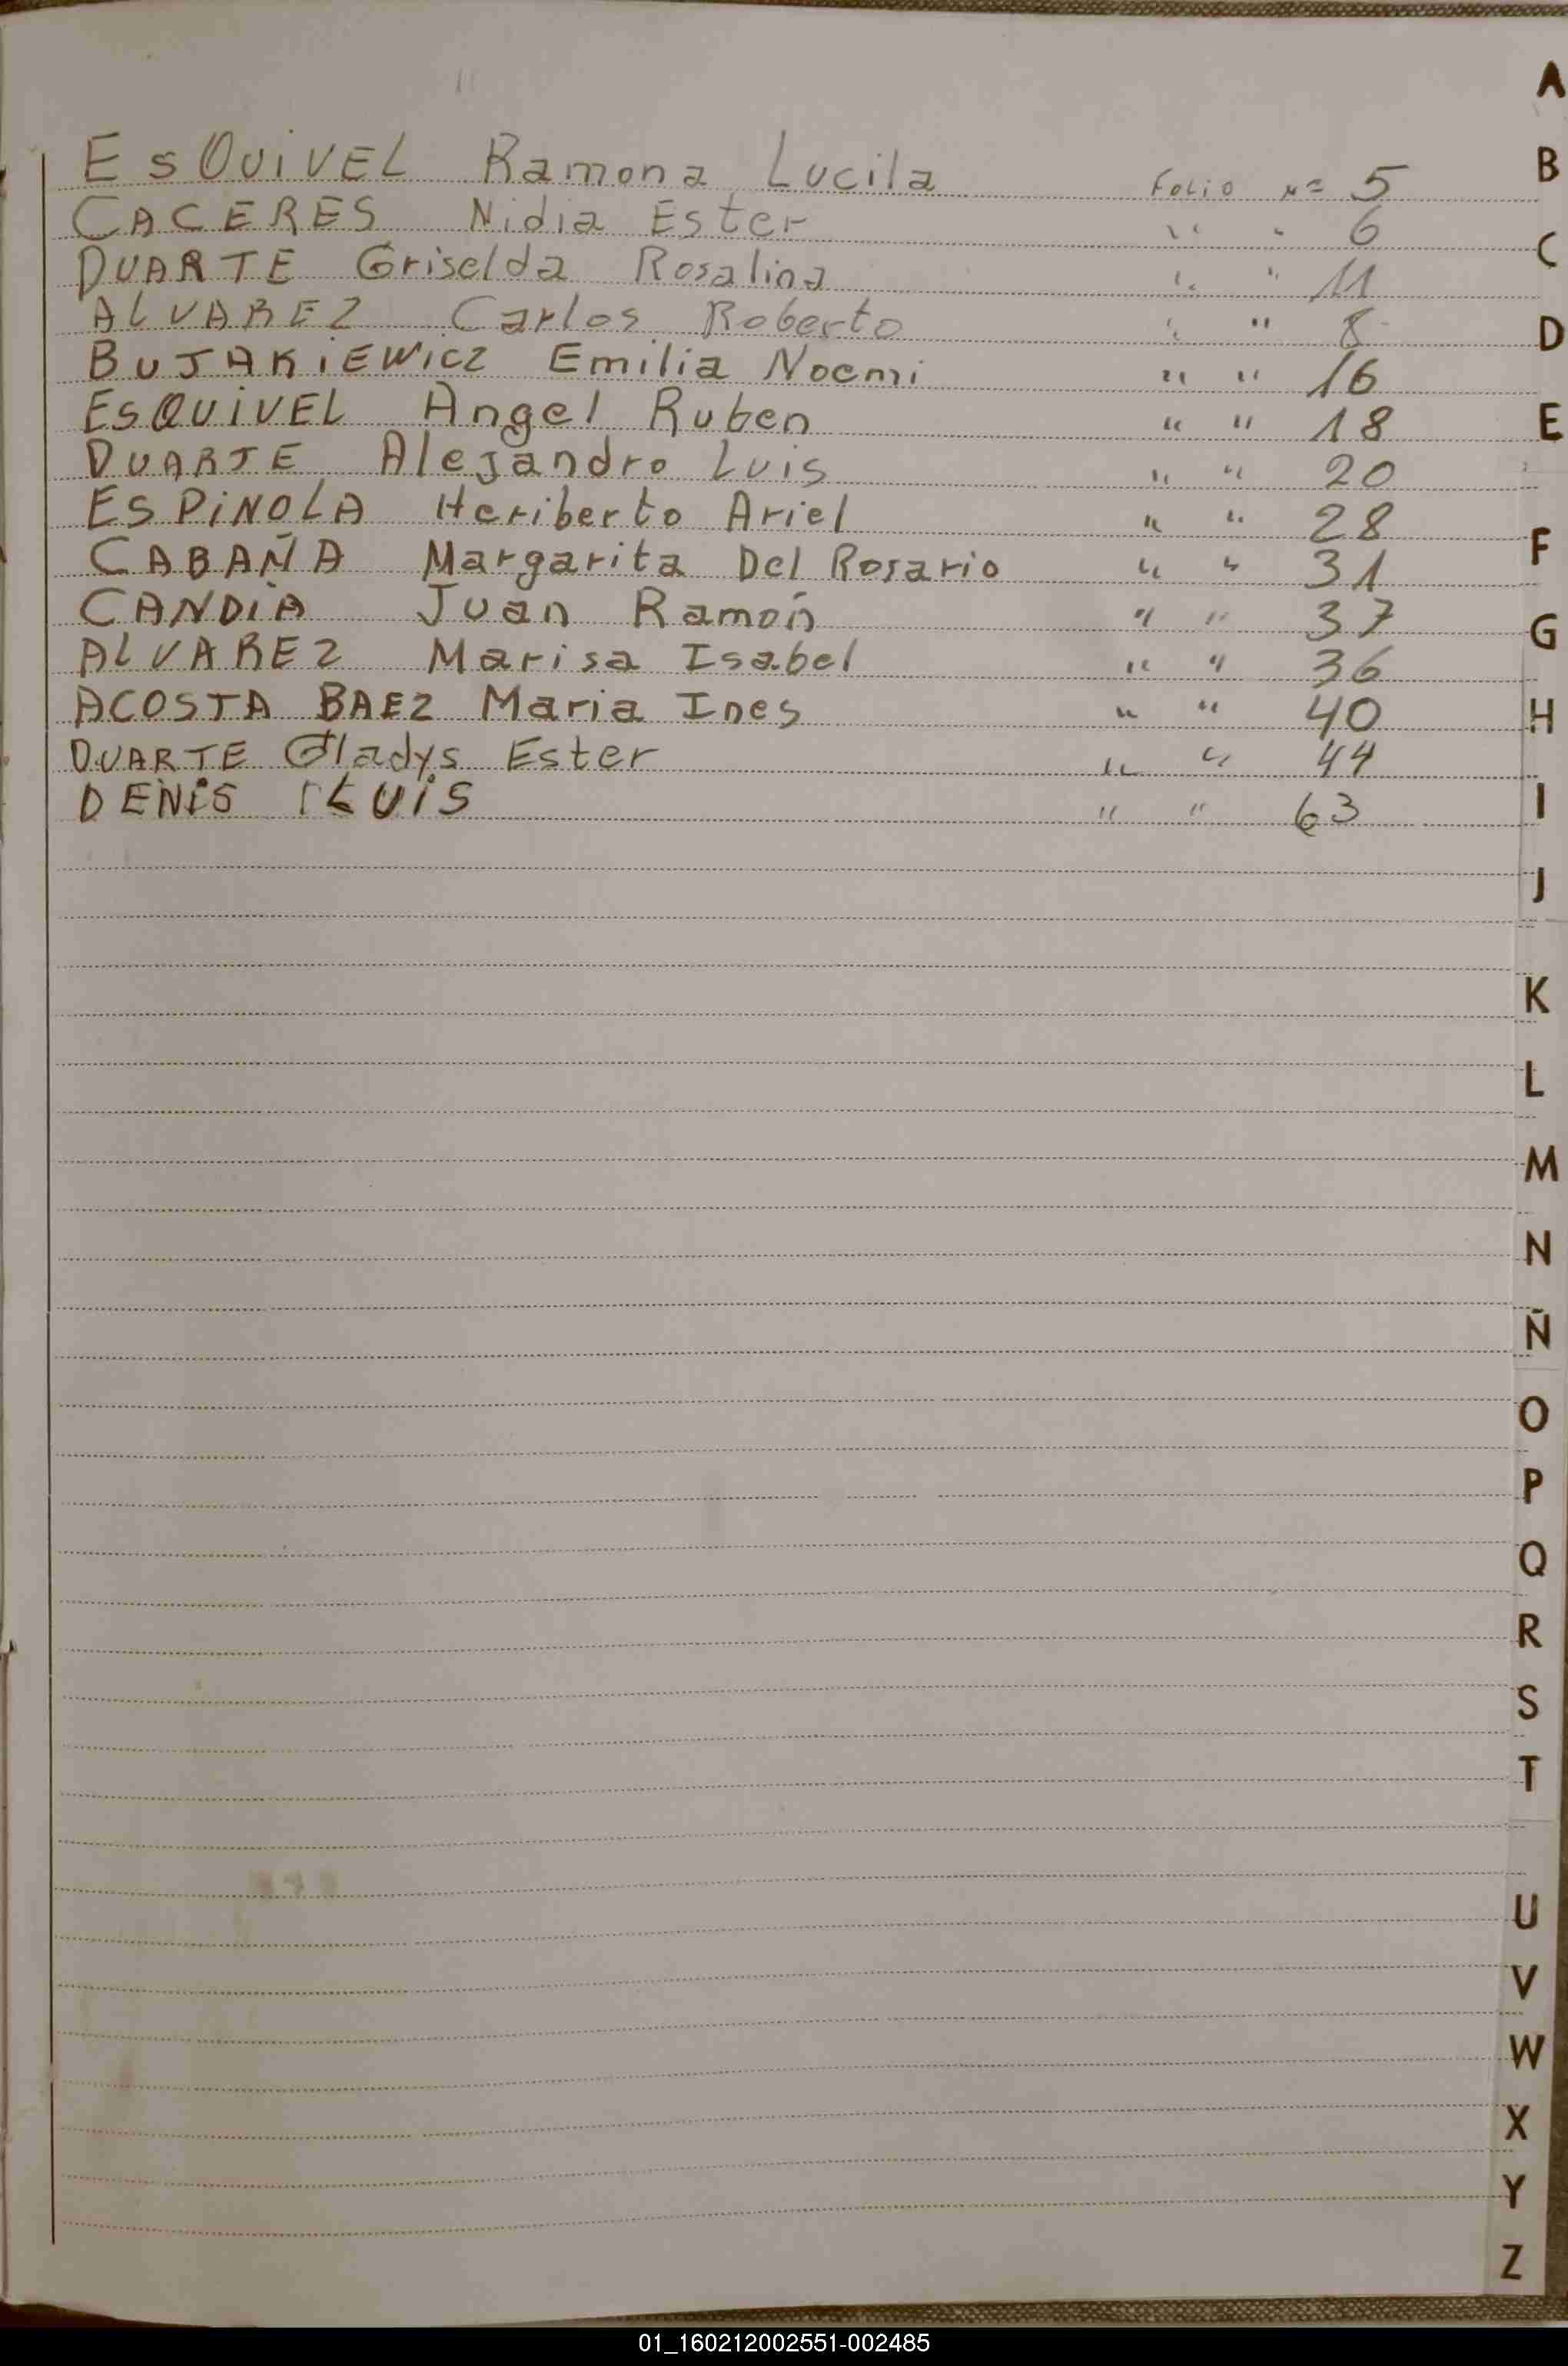 ESQUIVEL Ramona Lucila Folio nº 5
CACERES Nidia Ester " " 6
DUARTE Griselda Rosalina " " 11
ALVAREZ Carlos Roberto " " 8
BUJAKIEWICZ Emilia Noemi " " 16
ESQUIVEL Angel Ruben " " 18
DUARTE Alejandro Luis " " 20
ESPINOLA Heriberto Ariel " " 28
CABAÑA Margarita Del Rosario " " 31
CANDIA Juan Ramón " " 37
ALVAREZ Marisa Isabel " " 36
ACOSTA BAEZ Maria Ines " " 40
DUARTE Gladys Ester " " 44
DENIS LUIS " " 63
A
B
C
D
E
F
G
H
I
J
K
L
M
N
Ñ
O
P
Q
R
S
T
U
V
W
X
Y
Z
01_160212002551-002485